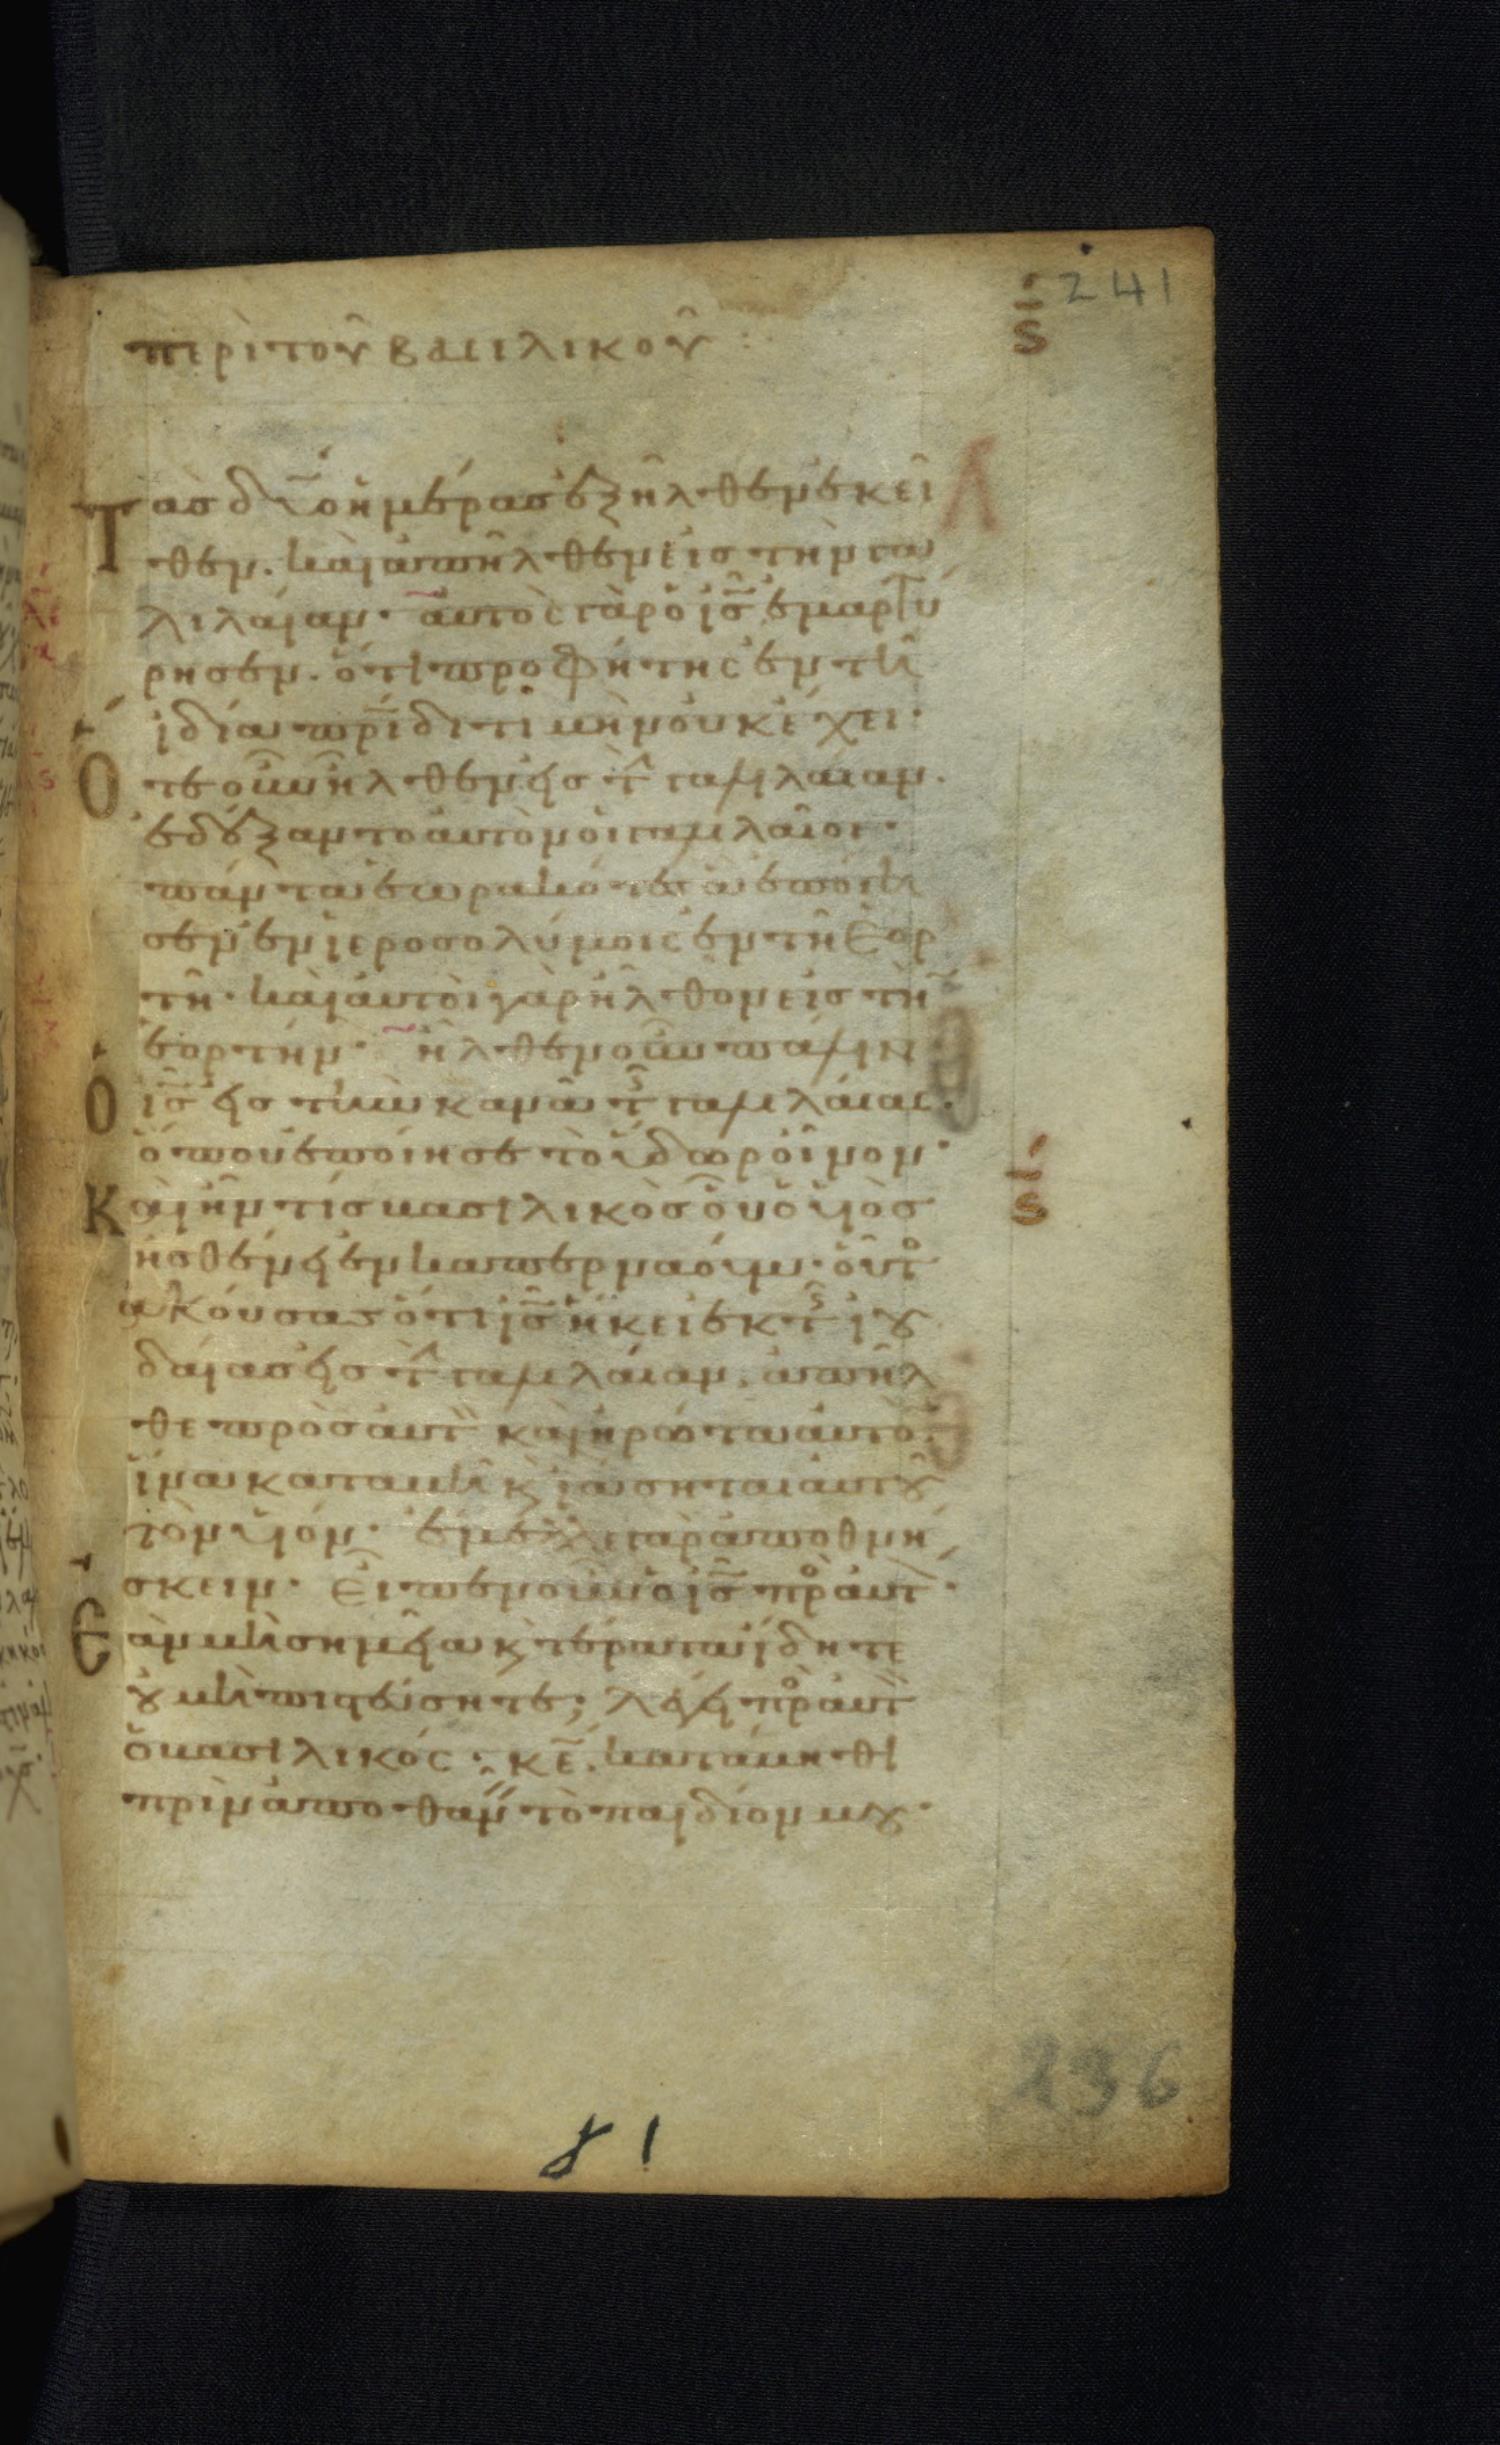 241
ς
περὶ τοῦ βασιλικοῦ :
Τὰσ δύο ἡμέρασ ἐξῆλθεν ἐκεῖ
θεν· καὶ ἀπῆλθεν εἰσ τὴν γα
λιλαίαν· αὐτὸς γὰρ ὁ ἰς̅ ἐμαρτύ
ρησεν· ὅτι προφήτης ἐν τῆ
ἰδία πρι̅δι τιμὴν οὐκ ἔχει·
Ὅτε οὖν ἦλθεν εἰσ τ̀ γαλιλαίαν·
ἐδέξαντο αὐτὸν οἱ γαλιλαῖοι·
πάντα ἑωρακότες ἃ ἐποίη
σεν ἐν ἱεροσολύμοις ἐν τῆ ἑορ
τῆ· καὶ αὐτοὶ γὰρ ἦλθον εἰσ τὴ̅
ἑορτήν· ἦλθεν οὖν πάλιν
Ὁ ἰς̅ εἰσ τὴν κανᾶ τ̂ γαλιλαίας·
ὅπου ἐποίησε τὸ ὕδωρ οἶνον·
Καὶ ἦν τίσ βασιλικὸσ οὗ ὁ υἱὸσ
ἠσθένει ἐν καπερναούμ· οὗτο
ἀκούσασ ὅτι ἰς̅ ἥκει ἐκ τ̂ ἰου
δαίασ εἰσ τ̀ γαλιλαίαν· ἀπῆλ
θε πρὸσ αὐτ̀ καὶ ἠρώτα αὐτὸ̅
ἵνα καταβῆ κ̀ ἰάσηται αὐτοῦ
τὸν υἱόν· ἔμελλε γὰρ ἀποθνή
σκειν· Εἶπεν οὖν ὁ ἰς̅ πρὸ αὐτ̀·
Ἐὰν μὴ σημεῖα κ̀ τέρατα ἴδητε
οὐ μὴ πιστεύσητε; λέγει πρὸ αὐτ̀
ὁ βασιλικός· κε̅· κατάβηθι
πρὶν ἀποθαν̀ τὸ παιδίον μου·
ς
236
81